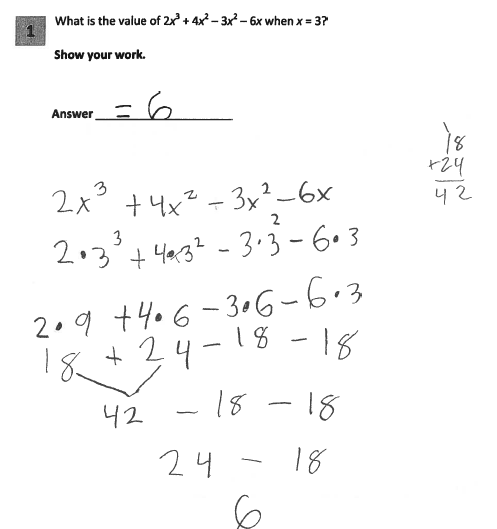 1
What is the value of 2x³ + 4x² – 3x² – 6x when x = 3?
Show your work.
Answer = 6
18
+24
42
2x³ + 4x² – 3x² – 6x
2·3³ + 4·3² – 3·3² – 6·3
2·9 + 4·6 – 3·6 – 6·3
18 + 24 – 18 – 18
42 – 18 – 18
24 – 18
6